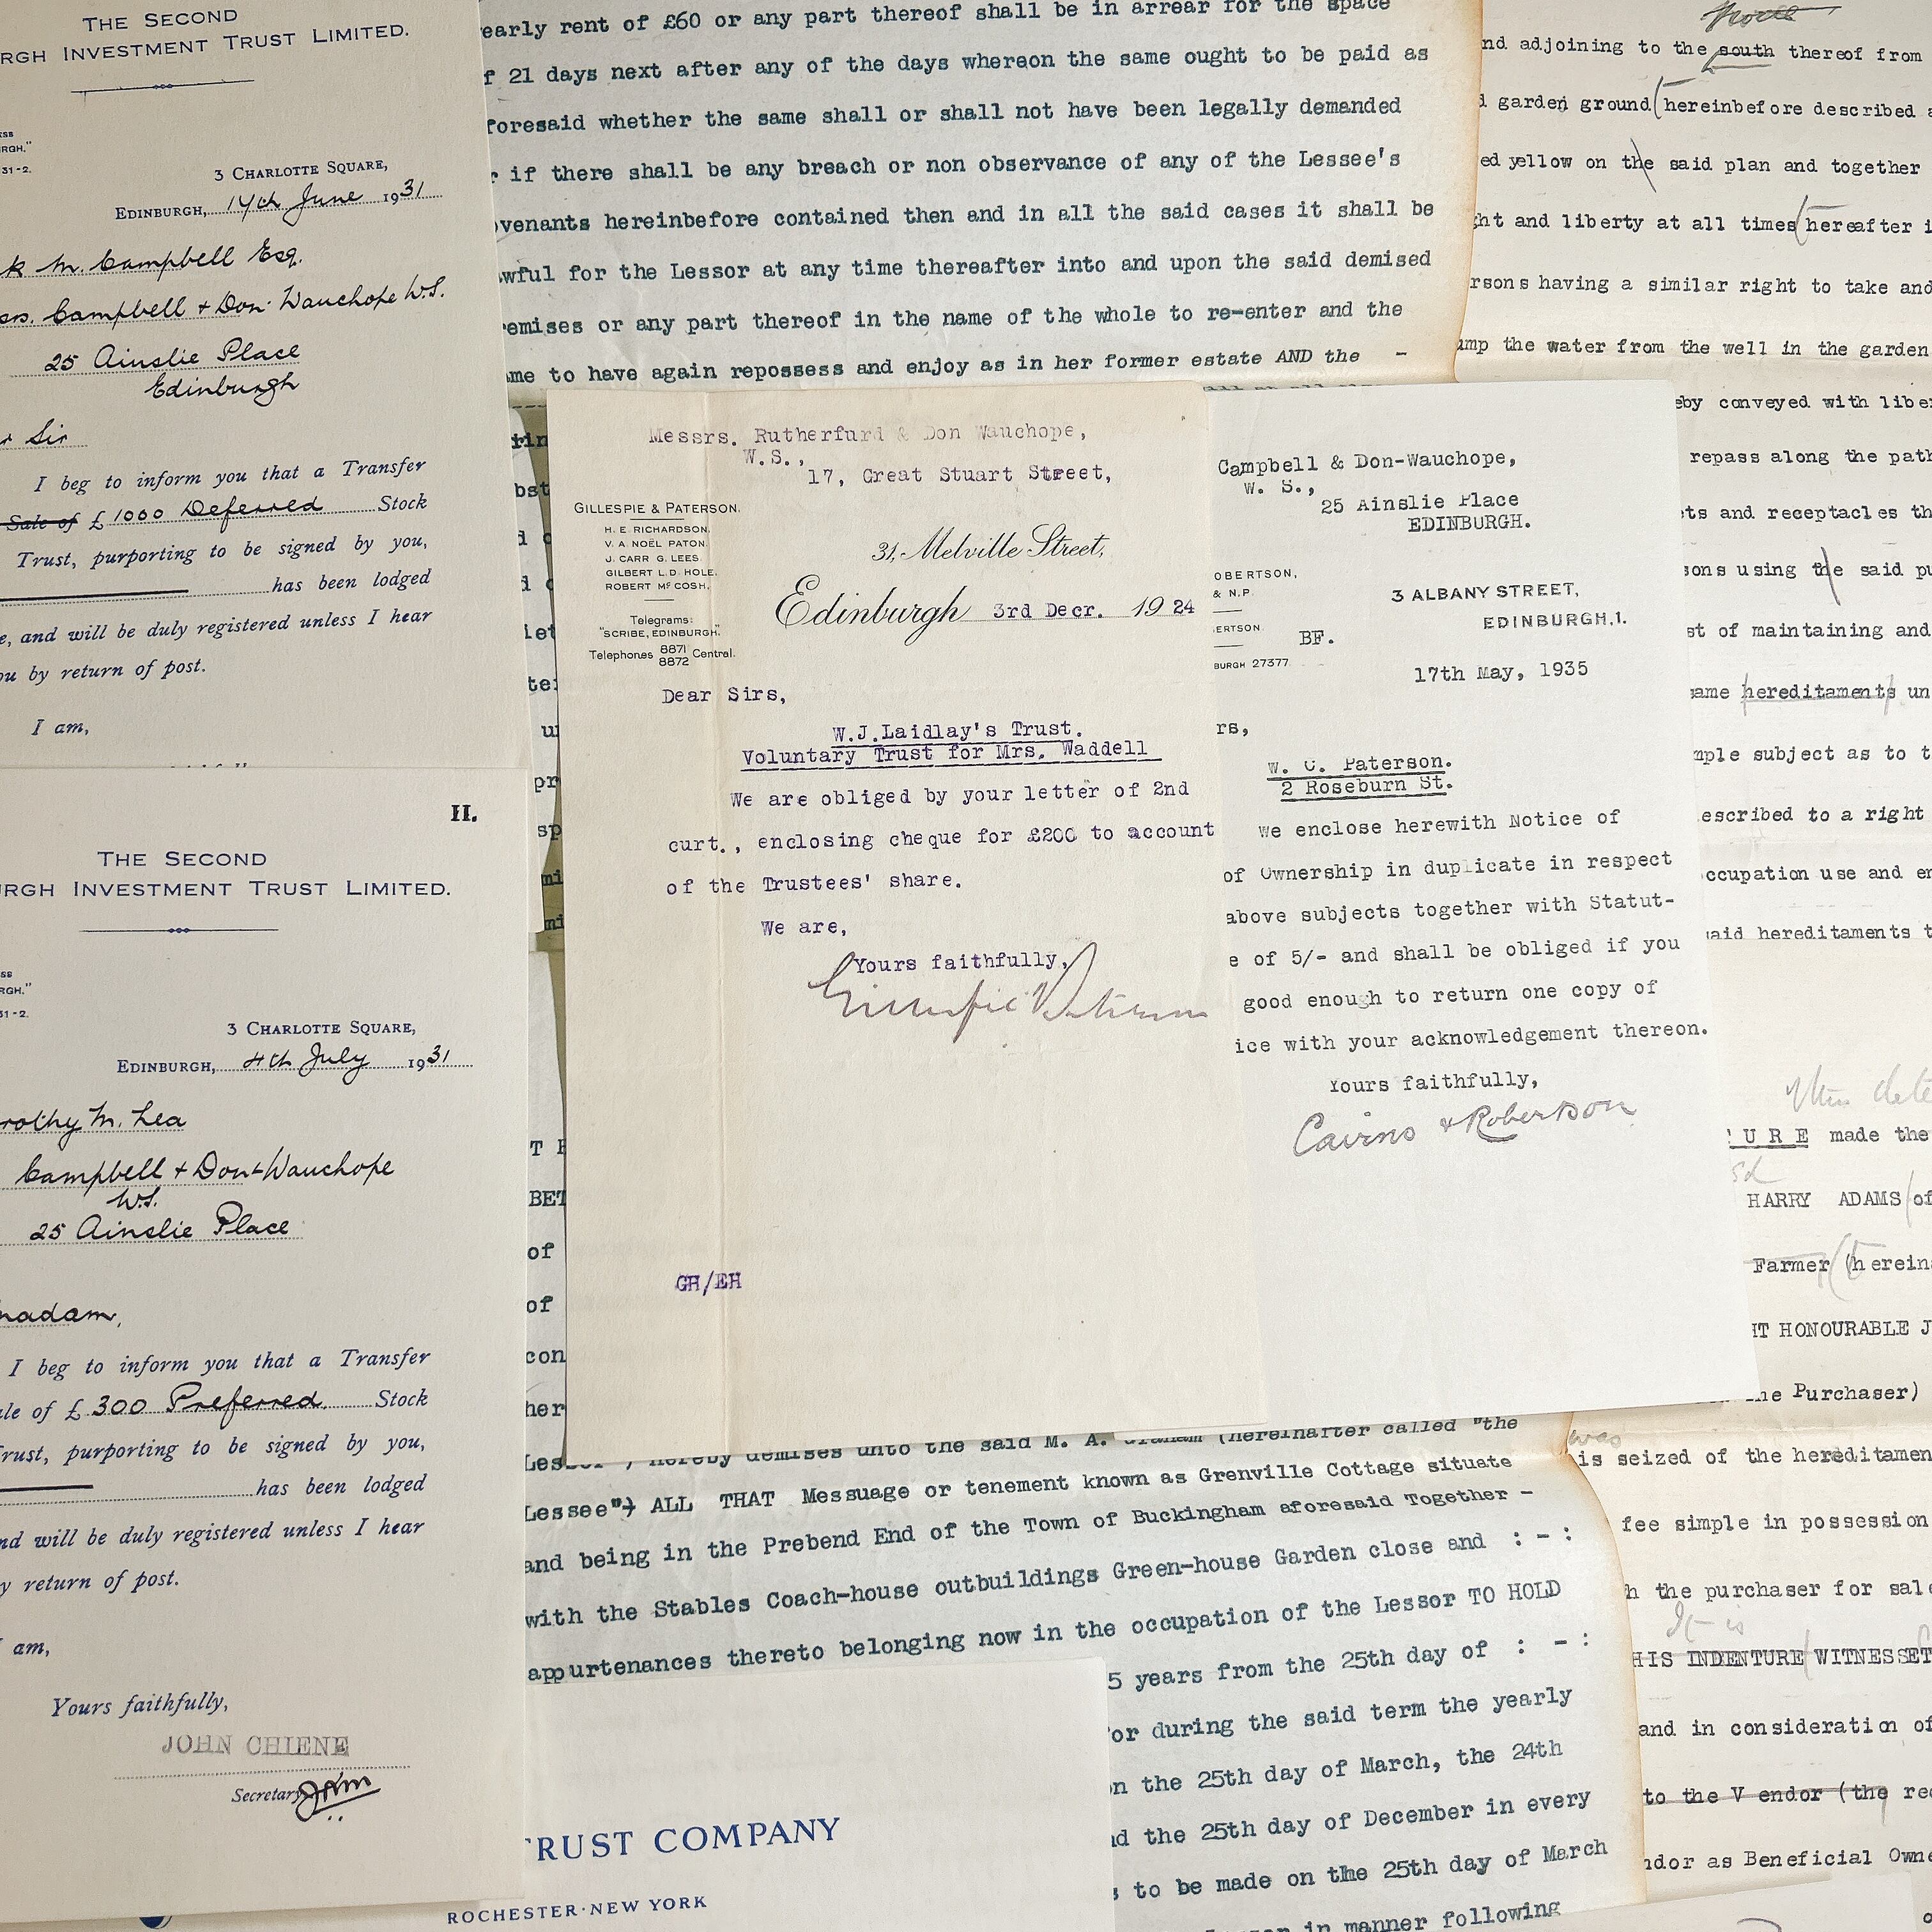 THE SECOND
RGH INVESTMENT TRUST LIMITED.
RGH."
31-2.
3 CHARLOTTE SQUARE,
EDINBURGH, 14th June 1931
k M. Campbell Esq.
Campbell + Don Wauchope W.S.
25 Ainslie Place
Edinburgh
Sir
I beg to inform you that a Transfer
Sale of £ 1000 Deferred Stock
Trust, purporting to be signed by you,
has been lodged
e, and will be duly registered unless I hear
ou by return of post.
I am,
II.
THE SECOND
URGH INVESTMENT TRUST LIMITED.
RGH."
31-2.
3 CHARLOTTE SQUARE,
EDINBURGH, 4th July 1931
rothy M. Lea
Campbell + Don-Wauchope
W.S.
25 Ainslie Place
madam,
I beg to inform you that a Transfer
ale of £ 300 Preferred Stock
Trust, purporting to be signed by you,
has been lodged
nd will be duly registered unless I hear
y return of post.
I am,
Yours faithfully,
JOHN CHIENE
Secretary
early rent of £60 or any part thereof shall be in arrear for the space
f 21 days next after any of the days whereon the same ought to be paid as
foresaid whether the same shall or shall not have been legally demanded
r if there shall be any breach or non observance of any of the Lessee's
ovenants hereinbefore contained then and in all the said cases it shall be
awful for the Lessor at any time thereafter into and upon the said demised
remises or any part thereof in the name of the whole to re-enter and the
ame to have again repossess and enjoy as in her former estate AND the -
Messrs. Rutherfurd & Don Wauchope,
W.S.,
17, Great Stuart Street,
GILLESPIE & PATERSON.
H. E. RICHARDSON.
V. A. NOËL PATON.
J. CARR G. LEES.
GILBERT L.D. HOLE.
ROBERT McCOSH.
Telegrams:
"SCRIBE, EDINBURGH."
Telephones 8871
8872 Central.
31, Melville Street,
Edinburgh 3rd Decr. 1924
Dear Sirs,
W.J.Laidlay's Trust.
Voluntary Trust for Mrs. Waddell
We are obliged by your letter of 2nd
curt., enclosing cheque for £200 to account
of the Trustees' share.
We are,
Yours faithfully,
Gillespie Paterson
GH/EH
Campbell & Don-Wauchope,
W. S.,
25 Ainslie Place
EDINBURGH.
OBERTSON,
& N.P.
ERTSON.
BURGH 27377
3 ALBANY STREET,
EDINBURGH,1.
BF.
17th May, 1935
rs,
W. C. Paterson.
2 Roseburn St.
We enclose herewith Notice of
of Ownership in duplicate in respect
above subjects together with Statut-
e of 5/- and shall be obliged if you
good enough to return one copy of
ice with your acknowledgement thereon.
Yours faithfully,
Cairns & Robertson
nd adjoining to the south thereof from
d garden ground (hereinbefore described a
ed yellow on the said plan and together
ght and liberty at all times (hereafter i
rsons having a similar right to take and
ump the water from the well in the garden
eby conveyed with liber
repass along the path
ts and receptacles th
sons using the said pu
st of maintaining and
ame hereditaments un
mple subject as to t
escribed to a right
ccupation use and en
said hereditaments t
URE made the
HARRY ADAMS of
Farmer (herein
HT HONOURABLE J
he Purchaser)
was
is seized of the hereditamen
fee simple in possession
h the purchaser for sale
It is
HIS INDENTURE WITNESSET
and in consideration of
to the Vendor (the rec
ndor as Beneficial Owne
BET
of
of
con
her
Lessor") hereby demises unto the said M. A. Graham (hereinafter called "the
Lessee") ALL THAT Messuage or tenement known as Grenville Cottage situate
and being in the Prebend End of the Town of Buckingham aforesaid Together -
with the Stables Coach-house outbuildings Green-house Garden close and : - :
appurtenances thereto belonging now in the occupation of the Lessor TO HOLD
5 years from the 25th day of : - :
or during the said term the yearly
on the 25th day of March, the 24th
nd the 25th day of December in every
s to be made on the 25th day of March
in manner following
TRUST COMPANY
ROCHESTER·NEW YORK